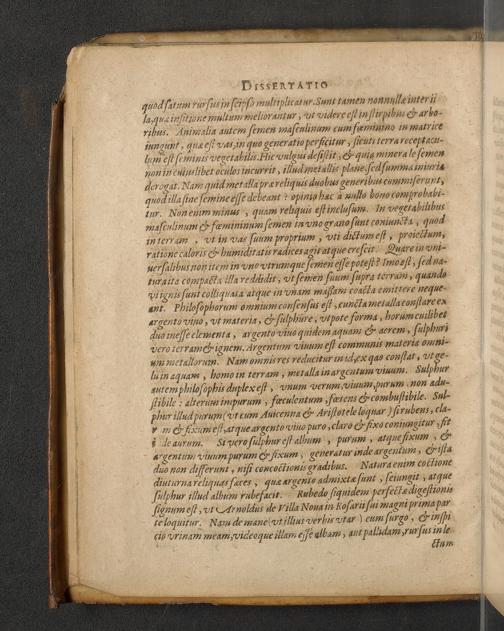 DISSERTATIO
quod satum rursus in seipso multiplicatur. Sunt tamen nonnulla inter il
la, quæ insitione multum meliorantur, vt videre est in stirpibus & arbo-
ribus. Animalia autem semen masculinum cum fœminino in matrice
iungunt, quæ est vas, in quo generatio perficitur, sicuti terra receptacu-
lum est seminis vegetabilis. Hic vulgus desistit, & quia minerale semen
non in cuiuslibet oculos incurrit, illud metallis plane, sed summa iniuria
derogat. Nam quid metalla præ reliquis duobus generibus commiserunt,
quod illa sine semine esse debeant? opinio hæc a nullo bono comprobabi-
tur. Non enim minus, quam reliquis est inclusum. In vegetabilibus
masculinum & fœmininum semen in vno grano sunt coniuncta, quod
in terram, vt in vas suum proprium, vti dictum est, proiectum,
ratione caloris & humiditatis radices agit atque crescit. Quare in vni-
uersalibus non item in vno vtrumque semen esse potest? Imo est, sed na-
tura ita compacta illa reddidit, vt semen suum supra terram, quando
vi ignis sunt colliquata atque in vnam massam coacta emittere neque-
ant. Philosophorum omnium consensus est, cuncta metalla constare ex
argento viuo, vt materia, & sulphure, vt pote forma, horum cuilibet
duo inesse elementa, argento viuo quidem aquam & aerem, sulphuri
vero terram & ignem. Argentum viuum est communis materia omni-
um metallorum. Nam omnis res reducitur in id, ex quo constat, vt ge-
lu in aquam, homo in terram, metalla in argentum viuum. Sulphur
autem philosophis duplex est, vnum verum, viuum, purum, non adu-
stibile: alterum impurum, fæculentum, fœtens & combustibile. Sul-
phur illud purum (vt cum Auicenna & Aristotele loquar) si rubens, cla-
r m & fixum est, atque argento viuo puro, claro & fixo coniungitur, fit
de aurum. Si vero sulphur est album, purum, atque fixum, &
argentum viuum purum & fixum, generatur inde argentum, & ista
duo non differunt, nisi concoctionis gradibus. Natura enim coctione
diuturna reliquas fæces, quæ argento admixtæ sunt, seiungit, atque
sulphur illud album rubefacit. Rubedo siquidem perfectæ digestionis
signum est, vt Arnoldus de Villa Noua in Rosarii sui magni prima par
te loquitur. Nam de mane (vt illius verbis vtar) cum surgo, & inspi
cio vrinam meam, videoque illam esse albam, aut pallidam, rursus in le
ctum